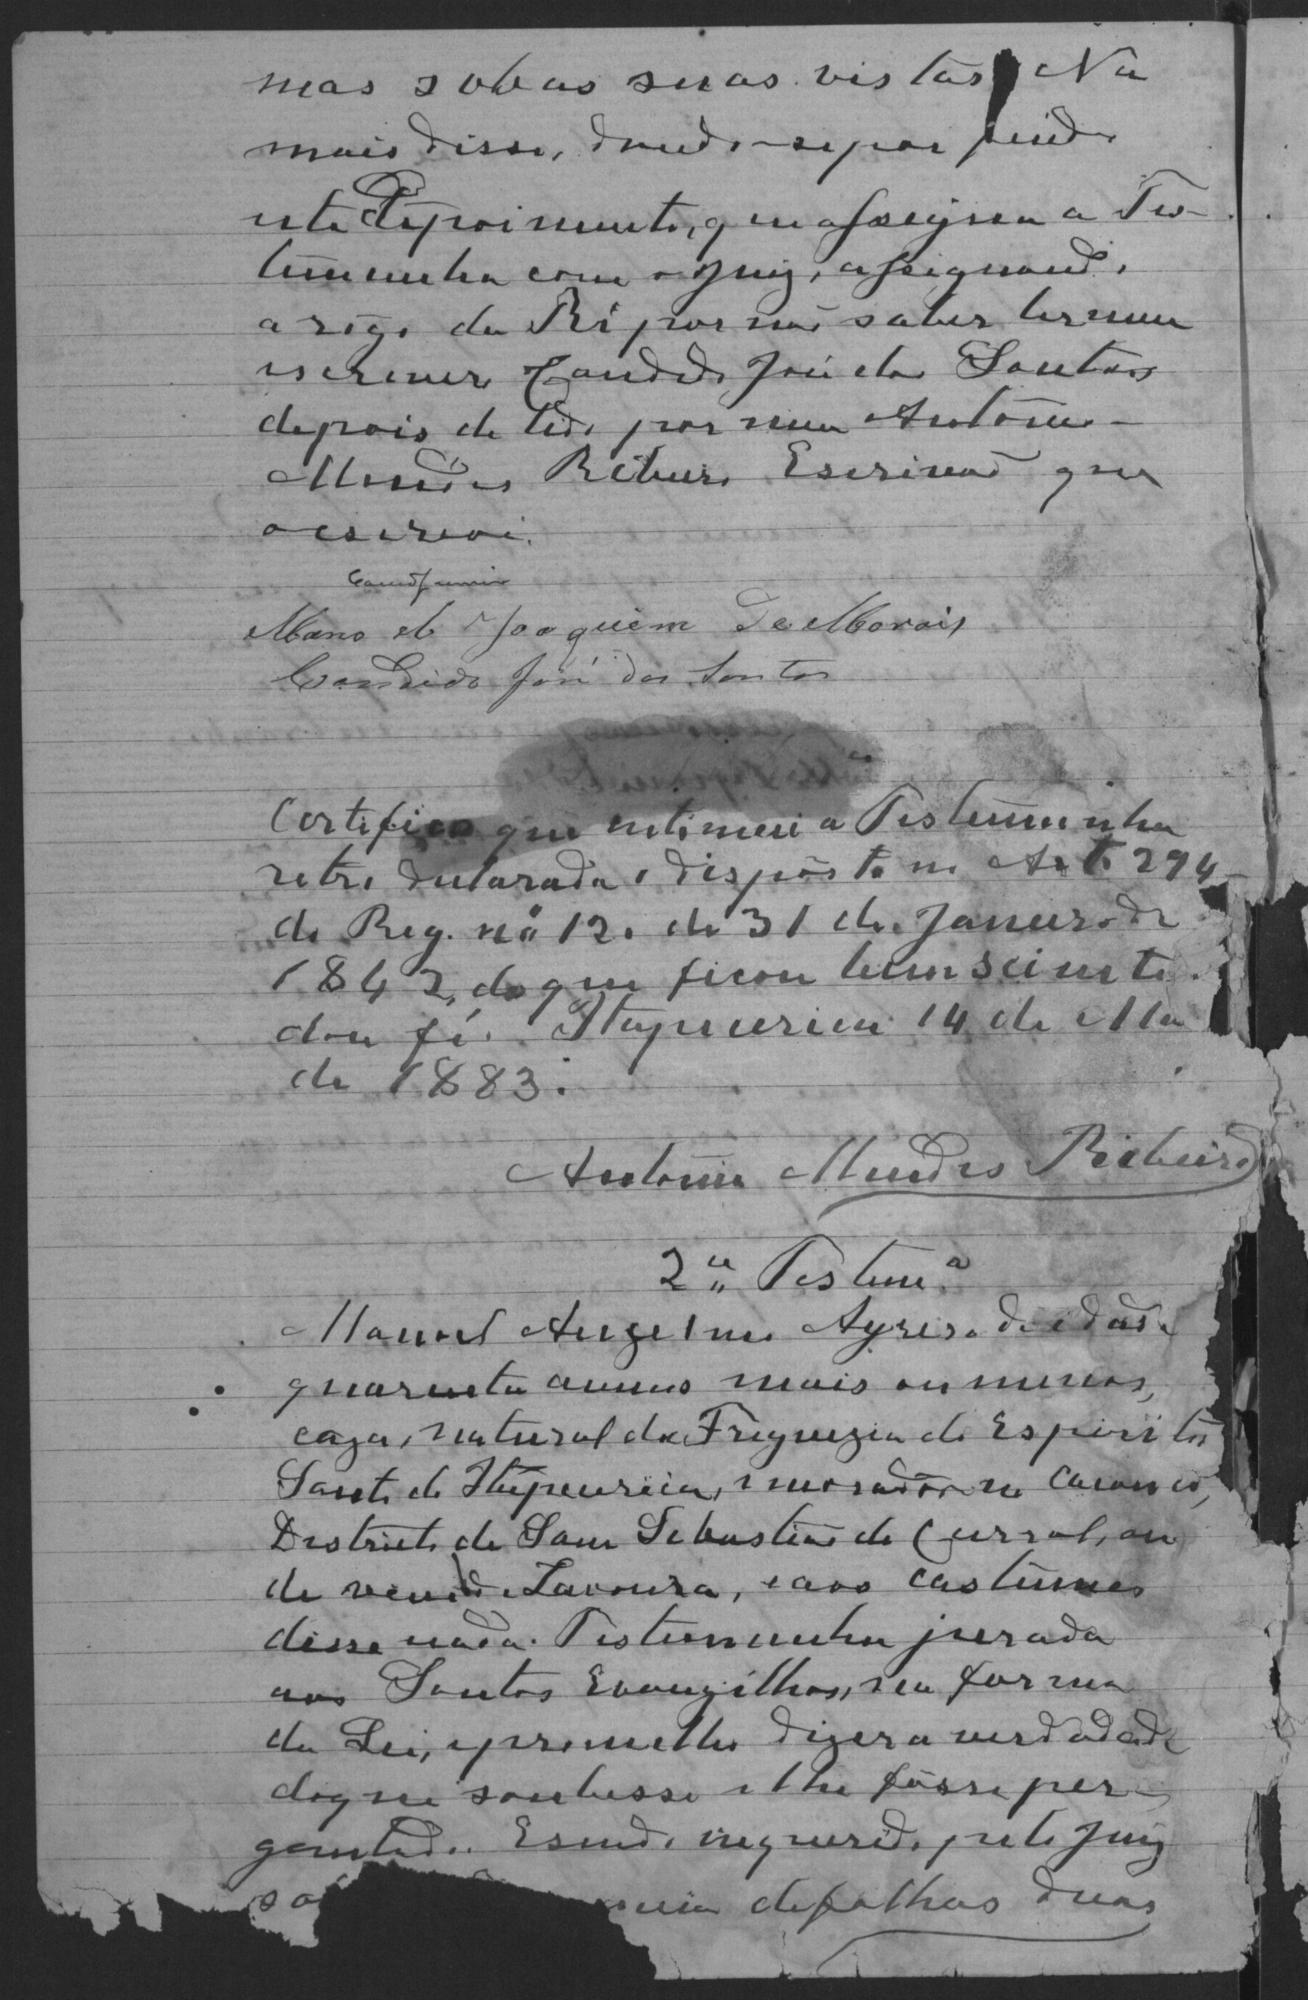 mas sobas suas vistas Na
mais disse, dando-se por findo
este Depoimento, que assigna a Tes-
temunha com o Juiz, assignando
a rogo da Ré por não saber ler nem
escrever Candido José dos Santos
depois de lido por mim Antonio
Mendes Ribeiro Escrivão que
o escrevi.
Manoel Joaquim de Morais
Candido José dos Santos
Certifico que intimei a Testeminha
retro declarada o disposto no Arto 294
do Reg. nº 12. de 31 de Janeiro de
1842, do que ficou bem sciente.
dou fé. Itapecerica 14 de Ma
de 1883.
Antonio Mendes Ribeiro
2ª Testemª
Manoel Anzelmo Ayres de idade
quarenta annos mais ou menos,
cazo, natural da Freguezia do Espirito
Santo de Itapecerica, morador no
Districto de Sam Sebastião do Curral, on
de vive de Lavoura, e aos custumes
disse nada. Testemunha jurada
aos Santos Evangilhos, na forma
da Lei, e prometteo dizer a verdadade
do que soubesse e lhe fôsse per-
guntado. E sendo inquerido pelo Juiz
so defolhas duas